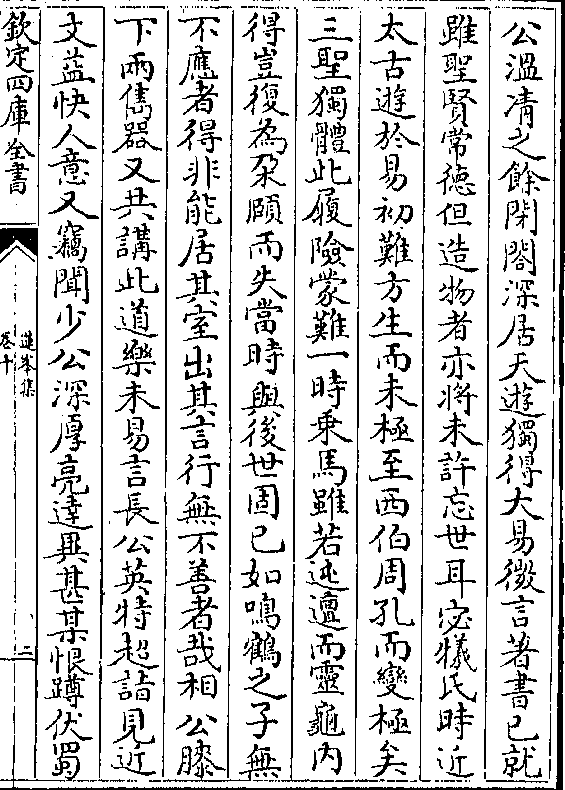 公溫凊之餘閉閤深居天遊獨得大易微言著書已就
雖聖賢常德但造物者亦將未許忘世耳宓犧氏時近
太古遊於易初難方生而未極至西伯周孔而變極矣
三聖獨體此履險蒙難一時乗馬雖若迍邅而靈龜内
得豈復為朶頤而失當時與後世固已如鳴鶴之子無
不應者得非能居其室出其言行無不善者哉相公膝
下兩雋器又共講此道樂未易言長公英特超詣見近
文益快人意又竊聞少公深厚亮達異甚某恨蹲伏蜀
欽定四庫全書
蓮峯集
卷十
二